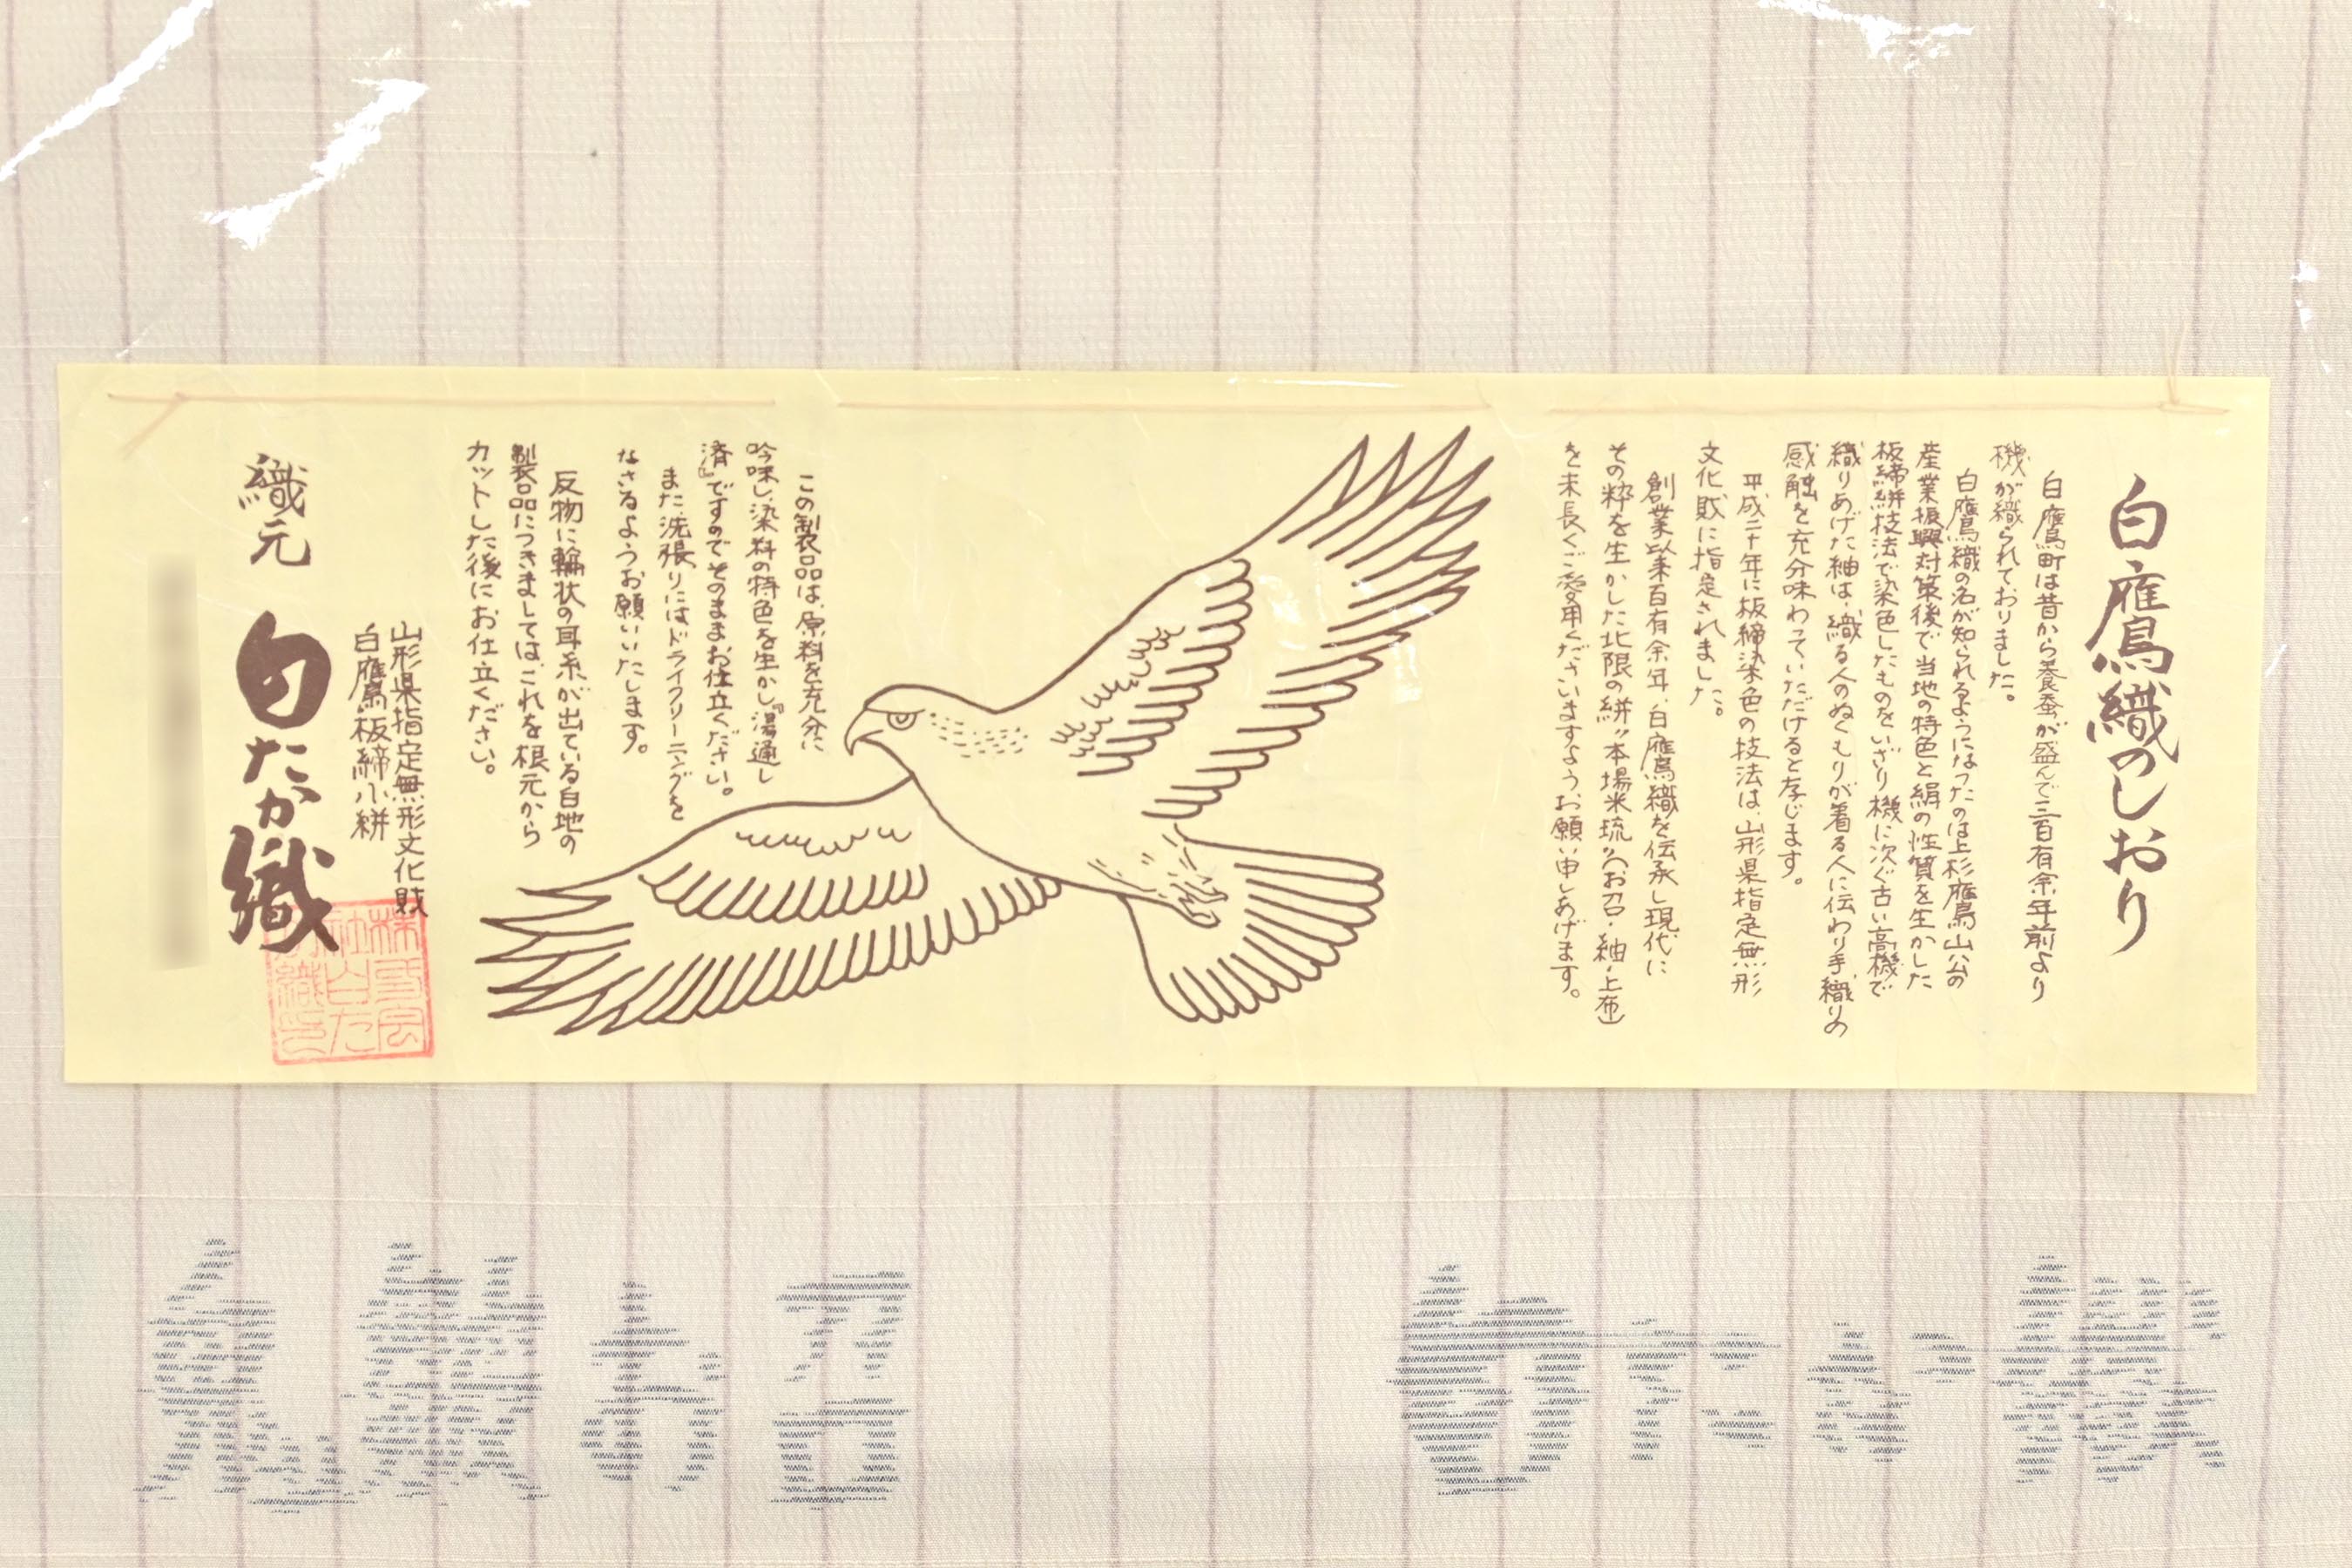 白鷹織のしおり
白鷹町は昔から養蚕が盛んで三百有余年前より
機が織られておりました。
白鷹織の名が知られるようになったのは上杉鷹山公の
産業振興対策後で当地の特色と絹の性質を生かした
板締絣技法で染色したものをいざり機に次ぐ古い高機で
織りあげた紬は、織る人のぬくもりが着る人に伝わり手織りの
感触を充分味わっていただけると存じます。
平成二十年に板締染色の技法は、山形県指定無形
文化財に指定されました。
創業以来百有余年、白鷹織を伝承し現代に
その粋を生かした北限の絣〝本場米琉〟(お召・紬・上布)
を末長くご愛用くださいますよう、お願い申しあげます。
この製品は、原料を充分に
吟味し、染料の特色を生かし『湯通し
済』ですのでそのままお仕立ください。
また、洗張りにはドライクリーニングを
なさるようお願いいたします。
反物に輪状の耳糸が出ている白地の
製品につきましては、これを根元から
カットした後にお仕立ください。
山形県指定無形文化財
白鷹板締小絣
織元 白たか織
株式会
社白た
か織之印
白たか織
御召